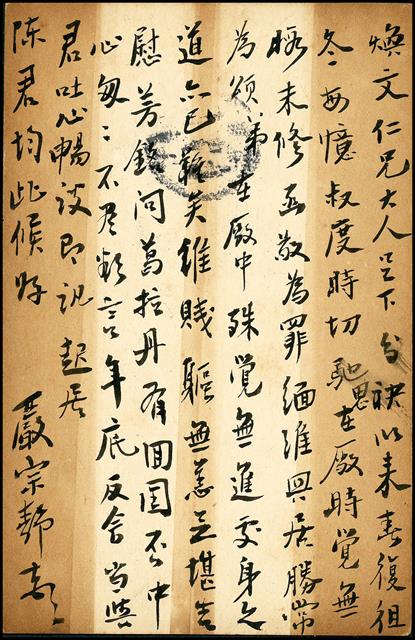 煥文仁兄大人足下分袂以来春復徂
冬每憶叔度時切馳思在廠時覺無
暇未修函敬為罪緬維興居勝常
為頌弟在廠中殊覺無進處身之
道亦已難矣維賤軀無恙足堪告
慰芳錦问葛拉丹有回国否中
心匆匆不尽欲言年底反舍当與
君吐心暢談即訊起居
陈君均此候好
嚴宗